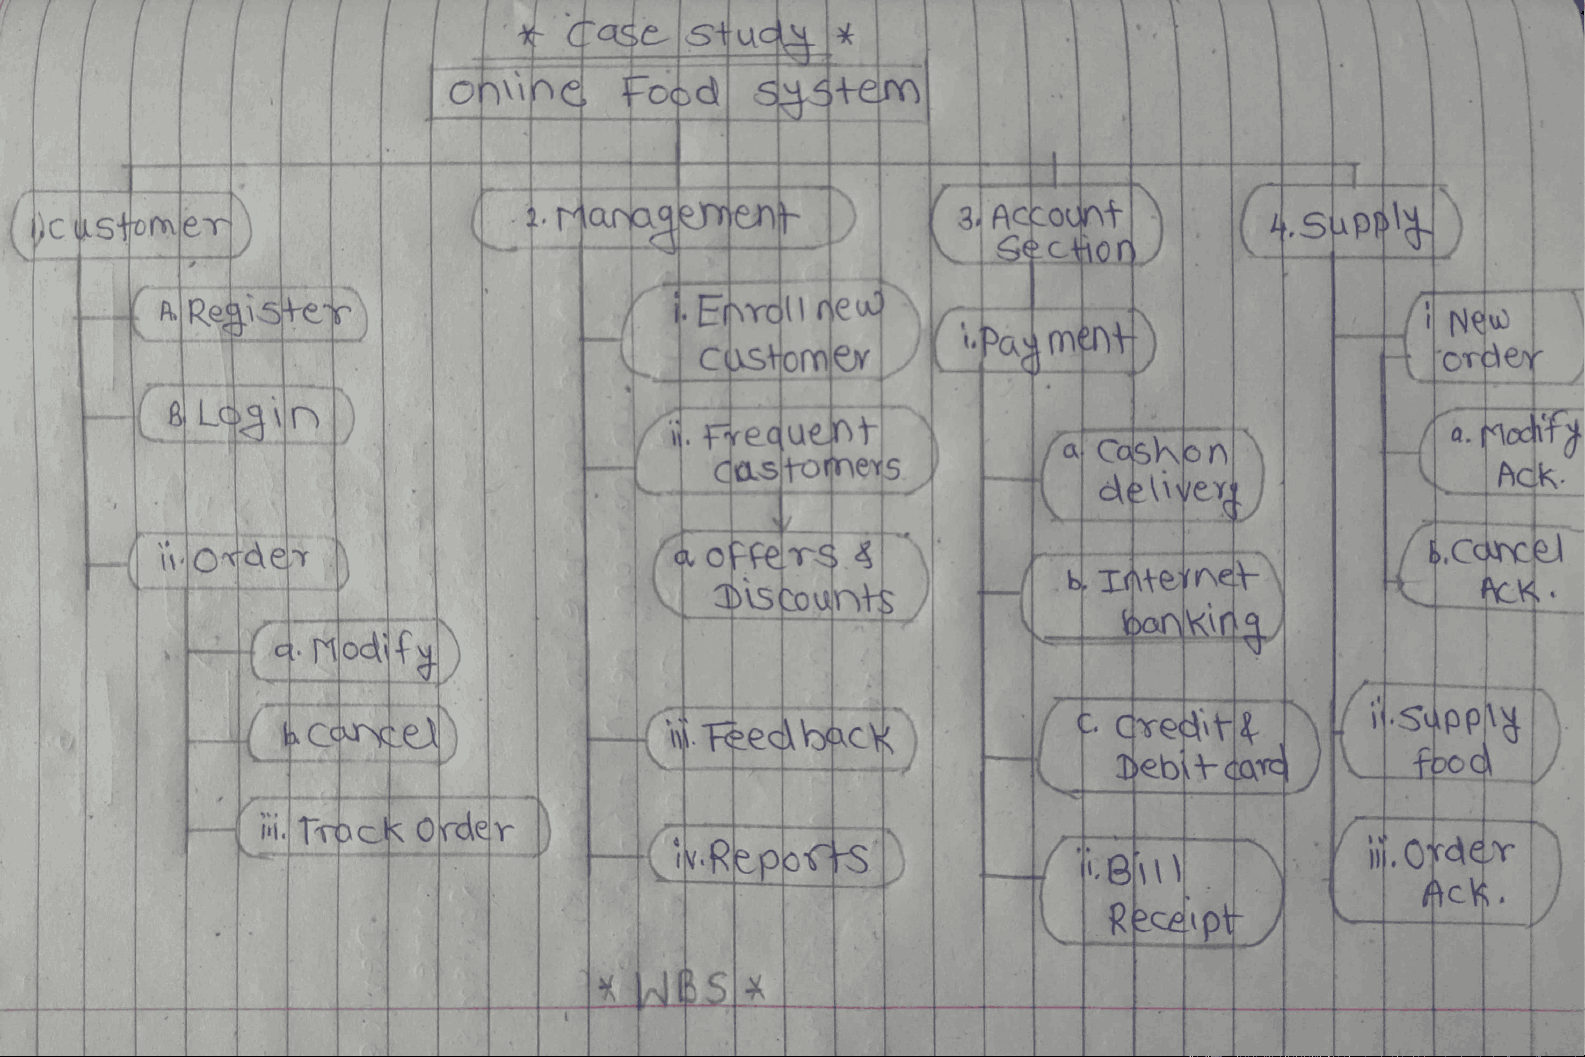 * Case study *
Online Food system
1) customer
A. Register
B. Login
ii. Order
a. Modify
b. cancel
iii. Track Order
2. Management
i. Enroll new
customer
ii. Frequent
castomers
a. offers &
Discounts
iii. Feedback
iv. Reports
3. Account
Section
i. Payment
a. Cash on
delivery
b. Internet
banking
c. credit &
Debit card
ii. Bill
Receipt
4. Supply
i New
order
a. Modify
ACK.
b. Cancel
ACK.
ii. supply
food
iii. Order
ACK.
* WBS *